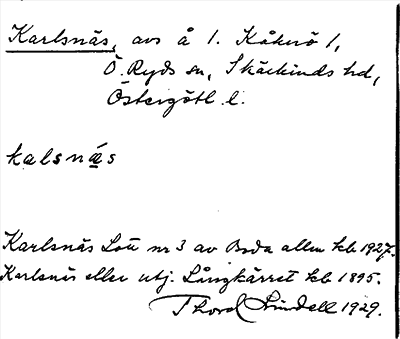 Karlsnäs, avs å 1. Kåknö 1,
Ö. Ryds sn, Skärkinds hd,
Östergötl. l.
kalsnäs
Karlsnäs Lott nr 3 av Boda allm kb 1927.
Karlsnäs eller utj. Långkärret kb 1895.
Thorol Lindell 1929.